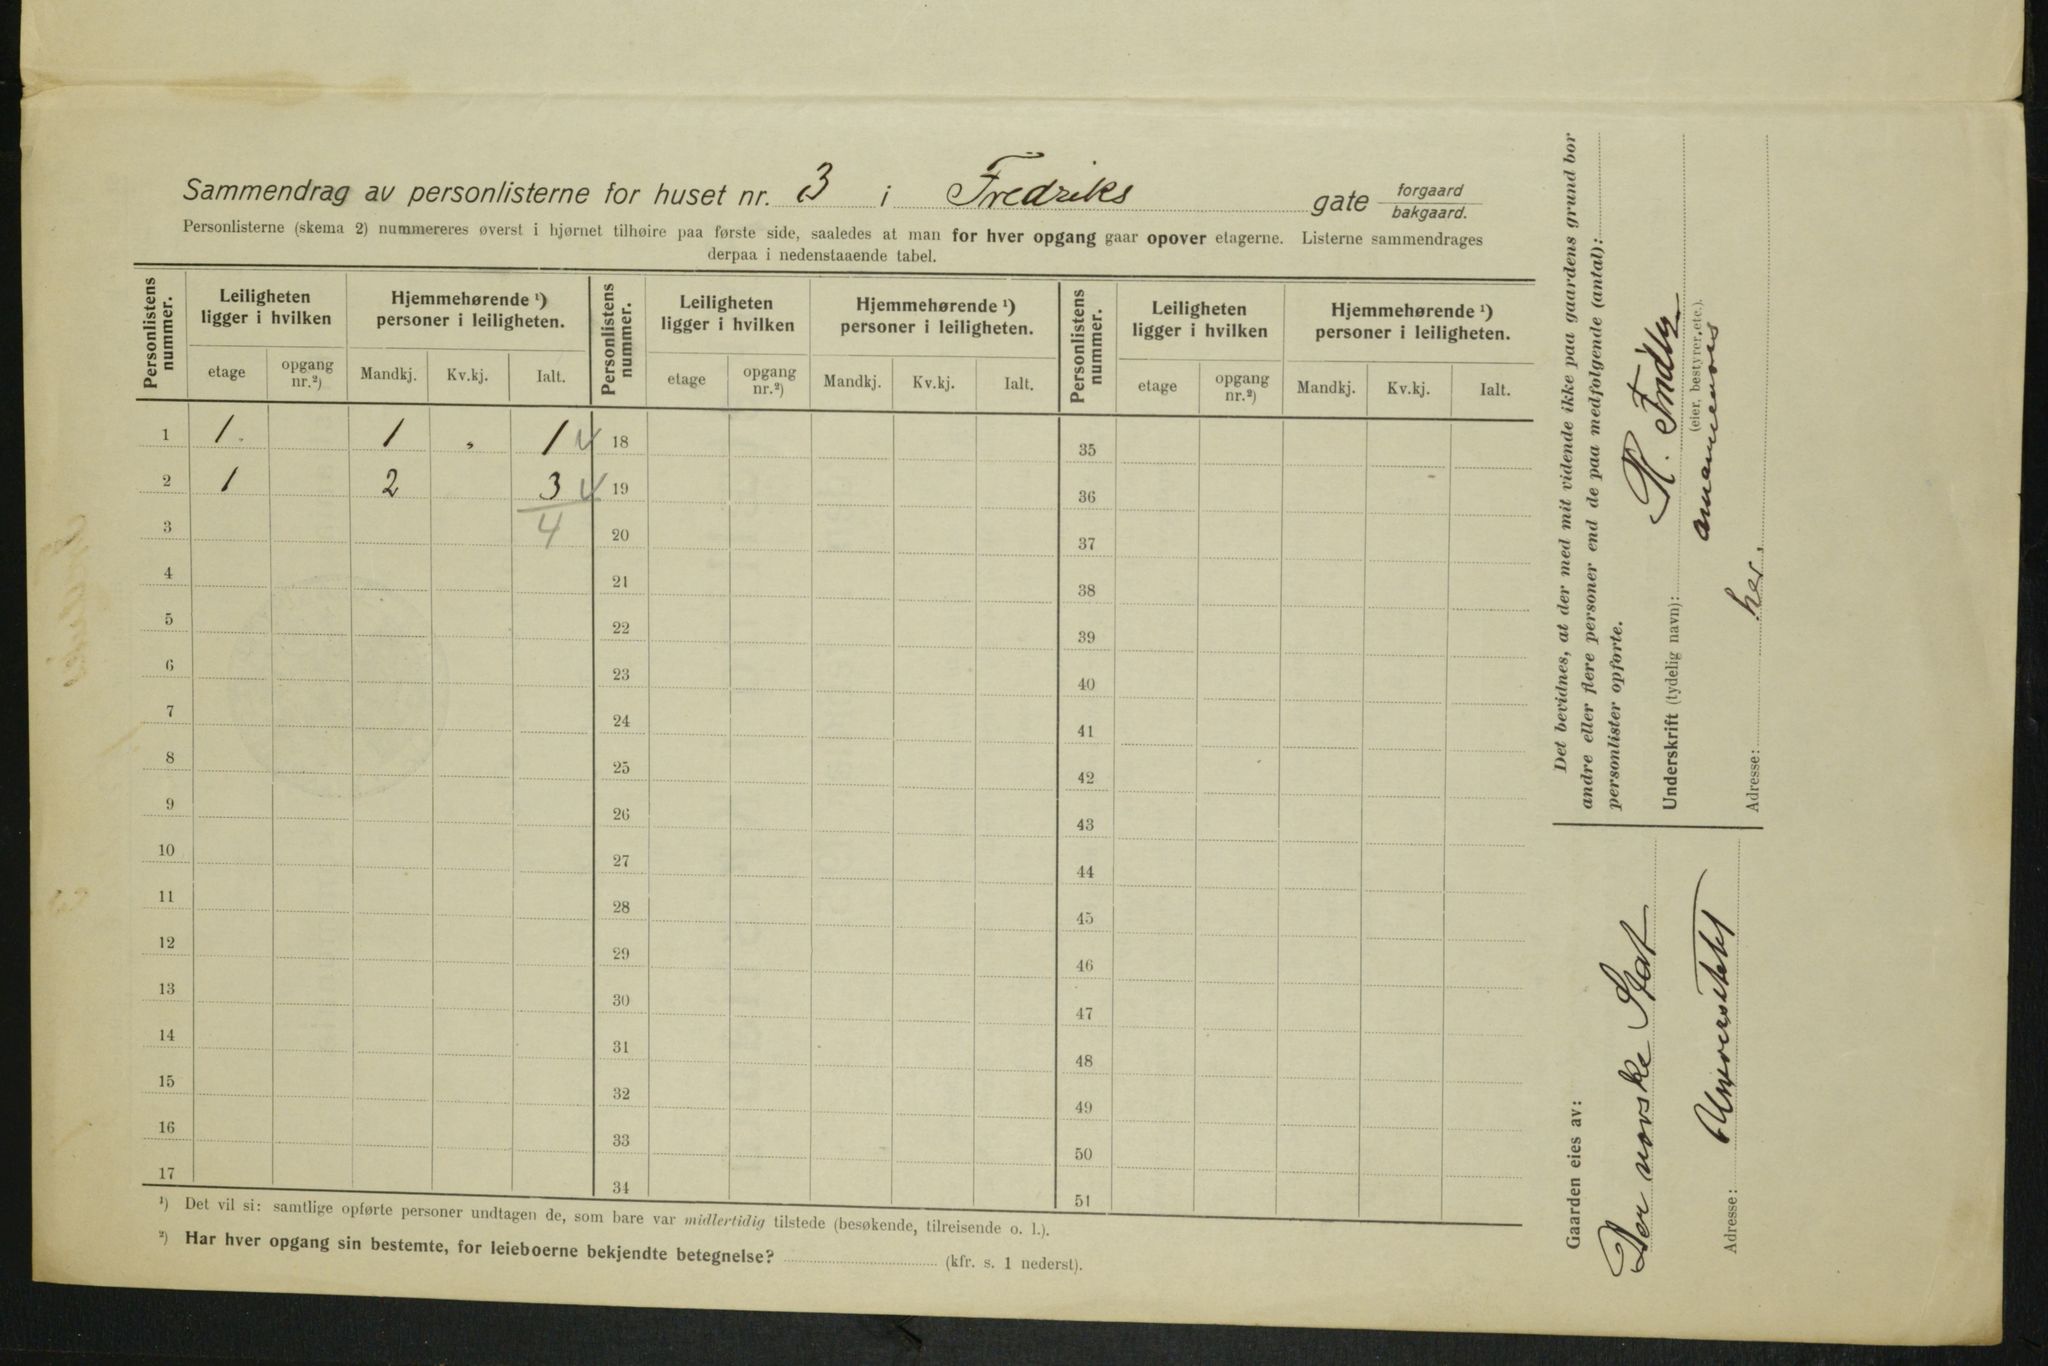 Sammendrag av personlisterne for huset nr. 3 i Fredriks gate forgaard bakgaard.
Personlisterne (skema 2) nummereres øverst i hjørnet tilhøire paa første side, saaledes at man for hver opgang gaar opover etagerne. Listerne sammendrages
derpaa i nedenstaaende tabel.
Personlistens nummer. Leiligheten ligger i hvilken Hjemmehørende ¹) personer i leiligheten. Personlistens nummer. Leiligheten ligger i hvilken Hjemmehørende ¹) personer i leiligheten. Personlistens nummer. Leiligheten ligger i hvilken Hjemmehørende ¹) personer i leiligheten.
etage opgang nr.²) Mandkj. Kv.kj. Ialt. etage opgang nr.²) Mandkj. Kv.kj. Ialt. etage opgang nr.²) Mandkj. Kv.kj. Ialt.
1 1. 1 „ 1 18 35
2 1 2 3 19 36
3 4 20 37
4 21 38
5 22 39
6 23 40
7 24 41
8 25 42
9 26 43
10 27 44
11 28 45
12 29 46
13 30 47
14 31 48
15 32 49
16 33 50
17 34 51
¹) Det vil si: samtlige opførte personer undtagen de, som bare var midlertidig tilstede (besøkende, tilreisende o. l.).
²) Har hver opgang sin bestemte, for leieboerne bekjendte betegnelse? (kfr. s. 1 nederst).
Det bevidnes, at der med mit vidende ikke paa gaardens grund bor
andre eller flere personer end de paa medfolgende (antal):
personlister opforte.
Underskrift (tydelig navn):
(eier, bestyrer, etc.).
Adresse: her.
Gaarden eies av:
Den norske Stat
Adresse: Universitetet